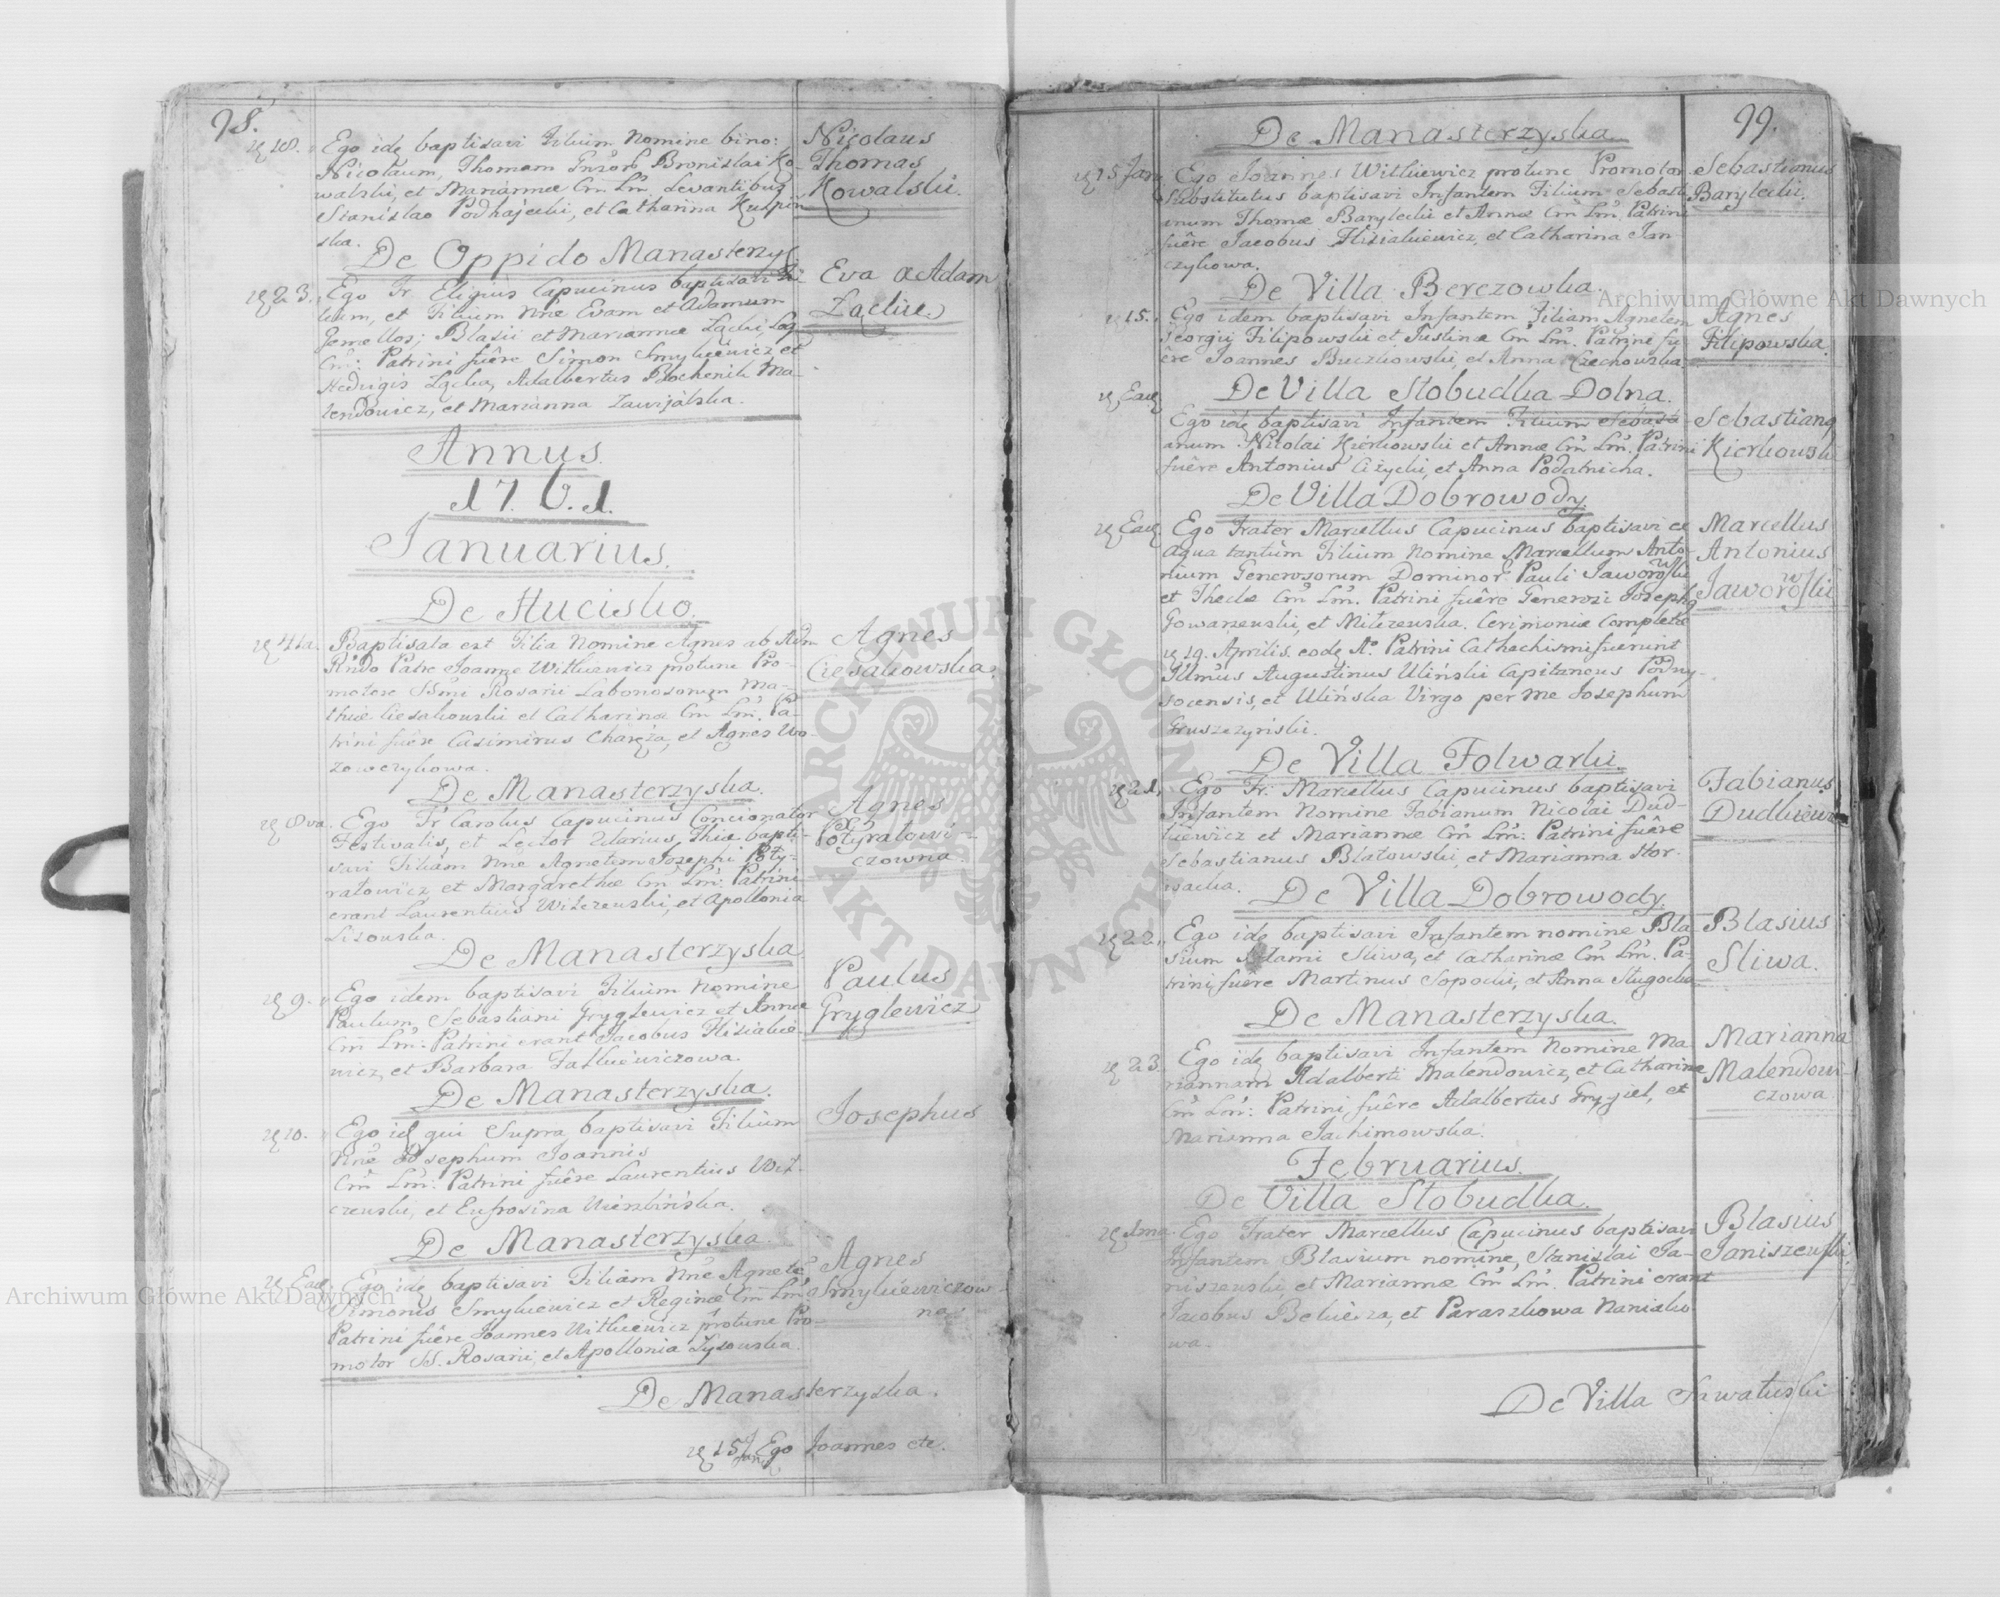 98.
18. Ego idę baptisavi Filium Nomine bino:
Nicolaum, Thomam Bronislai Ko-
walski, et Mariannæ Cm̃ Lm̃. Levantibus
Stanislao Podhajecki, et Catharina Kulpin
ska.
Nicolaus
Thomas
Kowalski.
De Oppido Manasterzys
23. Ego Fr. Eligius Capucinus baptisavi Fi-
liam, et Filium Nne Evam et Adamum
Gemellos; Blasii et Mariannæ Łącki Leg
Cm̃: Patrini fuêre Simon Smykiewicz et
Hedvigis Łącka, Adalbertus Ma-
lendowicz, et Marianna Zawijalska.
Eva & Adam
Łąckie
Annus
1761.
Januarius.
De Hucisko.
4ta. Baptisata est Filia Nomine Agnes ab Adm
Rndo Patre Joanne Witkiewicz protunc Pro-
motore SSmi Rosarii Laboriosorum Ma-
thiæ Ciesakowski et Catharinæ Cm̃ Lm̃. Pa-
trini fuêre Casimirus Charęża, et Agnes Wo-
zowczykowa.
Agnes
Ciesakowska.
De Manasterzyska.
8va. Ego Fr Carolus Capucinus Concionator
Festivalis, et Lector bapti-
savi Filiam Nne Agnetem Josephi Poty-
ratowicz et Margarethæ Cm̃ Lm̃: Patrini
erant Laurentius Witczewski, et Apollonia
Lisowska.
Agnes
Potyratowi-
czowna.
De Manasterzyska.
9. Ego idem baptisavi Filium Nomine
Paulum, Sebastiani Gryglewicz et Annæ
Cm̃ Lm̃: Patrini erant Jacobus Flisiakie-
wicz, et Barbara Fatkiewiczowa.
Paulus
Gryglewicz
De Manasterzyska.
10. Ego idę qui Supra baptisavi Filium
Nne Josephum Joannis
Cm̃ Lm̃: Patrini fuêre Laurentius Wit-
czewski, et Eufrosina Wierzbińska.
Josephus
De Manasterzyska.
Eadę Ego idę baptisavi Filiam Nne Agnetę
Simonis Smykiewicz et Reginæ Cm̃ Lm̃
Patrini fuêre Joannes Witkiewicz protunc Pro-
motor SS. Rosarii, et Apollonia Lysowska.
Agnes
Smykiewiczow-
na
De Manasterzyska.
15 Jan Ego Joannes etc.
99.
De Manasterzyska.
15 Jan. Ego Joannes Witkiewicz protunc Promotor
Substitutus baptisavi Infantem Filium Sebasti-
anum Thomæ Barylecki et Annæ Cm̃ Lm̃. Patrini
fuêre Jacobus Flisiakiewicz, et Catharina Jan
czykowa.
Sebastianus
Barylecki.
De Villa Berezowka.
15. Ego idem baptisavi Infantem Filiam Agnetem
Georgii Filipowski et Justinæ Cm̃ Lm̃. Patrini fu-
êre Joannes Buczkowski, et Anna Czechowska.
Agnes
Filipowska.
De Villa Slobudka Dolna.
Eadę Ego idę baptisavi Infantem Filium Sebasti-
anum Nicolai Kierkowski et Annæ Cm̃ Lm̃. Patrini
fuêre Antonius Ciżycki, et Anna Podatnicha.
Sebastianus
Kierkowski
De Villa Dobrowody.
Eadę Ego Frater Marcellus Capucinus baptisavi ex
aqua tantùm Filium Nomine Marcellum Anto-
nium Generosorum Dominor Pauli Jaworowski
et Theclæ Cm̃ Lm̃. Patrini fuêre Generosi Josephus
Gowarzewski, et Milczewska. Cerimoniæ Completæ
19. Aprilis. eodę Ao. Patrini Cathechismi fuerunt
Illmus Augustinus Uliński Capitaneus Podwy-
socensis, et Ulińska Virgo per me Josephum
Gruszczyński.
Marcellus
Antonius
Jaworowski
De Villa Folwarki.
21. Ego Fr: Marcellus Capucinus baptisavi
Infantem Nomine Fabianum Nicolai Dud-
kiewicz et Mariannæ Cm̃ Lm̃: Patrini fuêre
Sebastianus Blatowski, et Marianna Hor-
wacka.
Fabianus
Dudkiewicz
De Villa Dobrowody.
22. Ego idę baptisavi Infantem nomine Bla
sium Adami Sliwa, et Catharinæ Cm̃ Lm̃. Pa-
trini fuêre Martinus Sopocki, et Anna Slugocka
Blasius
Sliwa.
De Manasterzyska.
23. Ego idę baptisavi Infantem Nomine Ma-
riannam Adalberti Malendowicz, et Catharinæ
Cm̃ Lm̃: Patrini fuêre Adalbertus Grygiel, et
Marianna Jachimowska.
Marianna
Malendowi-
czowa
Februarius.
De Villa Slobudka.
1ma. Ego Frater Marcellus Capucinus baptisavi
Infantem Blasium nomine, Stanislai Ja-
niszewski, et Mariannæ Cm̃ Lm̃. Patrini erant
Jacobus Bekieza, et Paraszkowa Naniako
wa.
Blasius
Janiszewski.
De Villa Sawaluski
Archiwum Główne Akt Dawnych
Archiwum Główne Akt Dawnych
ARCHIWUM GŁÓWNE
AKT DAWNYCH